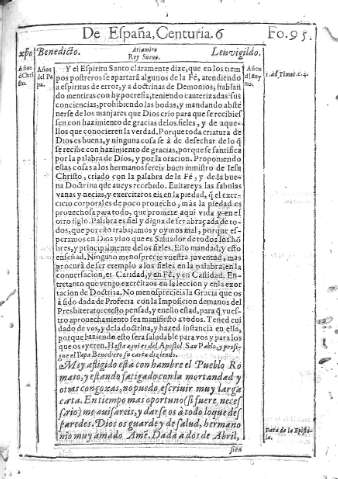 De España, Centuria. 6 Fo. 95.
Benedicto. Ariamiro Rey Suevo. Leuvigildo.
Años del Papa.
Años del Rey.
1. ad Timot. c. 4.
Y el Espiritu Santo claramente dize, que en los tiem
pos postreros se apartarà algunos de la Fé, atendiendo
a espiritus de error, y a doctrinas de Demonios, hablan
do mentiras con hypocresia, teniendo cauterizadas sus
conciencias, prohibiendo las bodas, y mandando abste
nerse de los manjares que Dios criò para que se recibies
sen con hazimiento de gracias de los fieles, y de aque-
llos que conocieren la verdad. Porque toda criatura de
Dios es buena, y ninguna cosa se à de desechar de lo q̃
se recibe con hazimiento de gracias, porque se santifica
por la palabra de Dios, y por la oracion. Proponiendo
estas cosas a los hermanos seràs buen ministro de Iesu
Christo, criado con la palabra de la Fé, y de la bue
na Doctrina que aveys recebido. Evitareys las fabulas
vanas y necias, y exercitaros eis en la piedad, q̃ el exer
cicio corporal es de poco provecho, mas la piedad es
provechosa para todo, que promete aqui vida y en el
otro siglo. Palabra es fiel y digna de ser abraçada de to-
dos, que por esso trabajamos y oymos mal, porque es-
peramos en Dios vivo que es Salvador de todos los hõ
bres, y principalmente de los fieles. Esto mandad, y esto
enseñad. Ninguno menosprecie vuestra juventud, mas
procurà de ser exemplo a los fieles en la palabra, en la
conversacion, en Caridad, y en Fé, y en Castidad. En-
tretanto que vengo exercitaos en la leccion y en la exor
tacion de Doctrina. No menosprecieis la Gracia que os
à sido dada de Profecia con la Imposicion de manos del
Presbiterato: en esto pensad, y en ello estad, para q̃ vues
tro aprovechamiento sea manifiesto a todos. Tened cui
dado de vos, y de la doctrina, y hazed instancia en ello,
porque haziendo esto sereis saludable para vos y para los
que os oyeren. Hasta aqui es del Apostol San Pablo, y prosi-
gue el Papa Benedicto su carta diziendo.
Muy afligido està con hambre el Pueblo Ro
mano, y estando fatigado con la mortandad y
otras congoxas, no puedo escrivir muy larga
carta. En tiempo mas oportuno (si fuere neces-
sario) me avisareys, y darse os à todo lo que des
paredes. Dios os guarde y de salud, hermano
mio muy amado. Amẽ. Dada a dos de Abril,
Fin de la Episto-
la.
sien